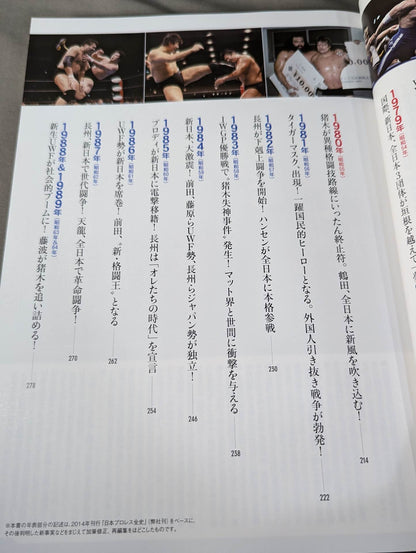 1979年（昭和54年）
国際、新日本、全日本、3団体が垣根を越えて
1980年（昭和55年）
猪木が異種格闘技路線にいったん終止符。鶴田、全日本に新風を吹き込む！
214
1981年（昭和56年）
タイガーマスク出現！一躍国民的ヒーローとなる。外国人引き抜き戦争が勃発！
222
1982年（昭和57年）
長州が下剋上闘争を開始！ハンセンが全日本に本格参戦
250
1983年（昭和58年）
IWGP優勝戦で“猪木失神事件”発生！マット界と世間に衝撃を与える
238
1984年（昭和59年）
新日本、大激震！前田、藤原らUWF勢、長州らジャパン勢が独立！
246
1985年（昭和60年）
ブロディが新日本に電撃移籍！長州は「オレたちの時代」を宣言
254
1986年（昭和61年）
UWF勢が新日本を席巻！前田、“新・格闘王”となる
262
1987年（昭和62年）
長州、新日本で“世代闘争”！天龍、全日本で革命闘争！
270
1988年&1989年（昭和63年&64年）
新生UWFが社会的ブームに！藤波が猪木を追い詰める！
278
※本書の年表部分の記述は、2014年刊行『日本プロレス全史』（弊社刊）をベースに、
その後判明した新事実などをまじえて加筆修正、再編集をほどこしたものです。